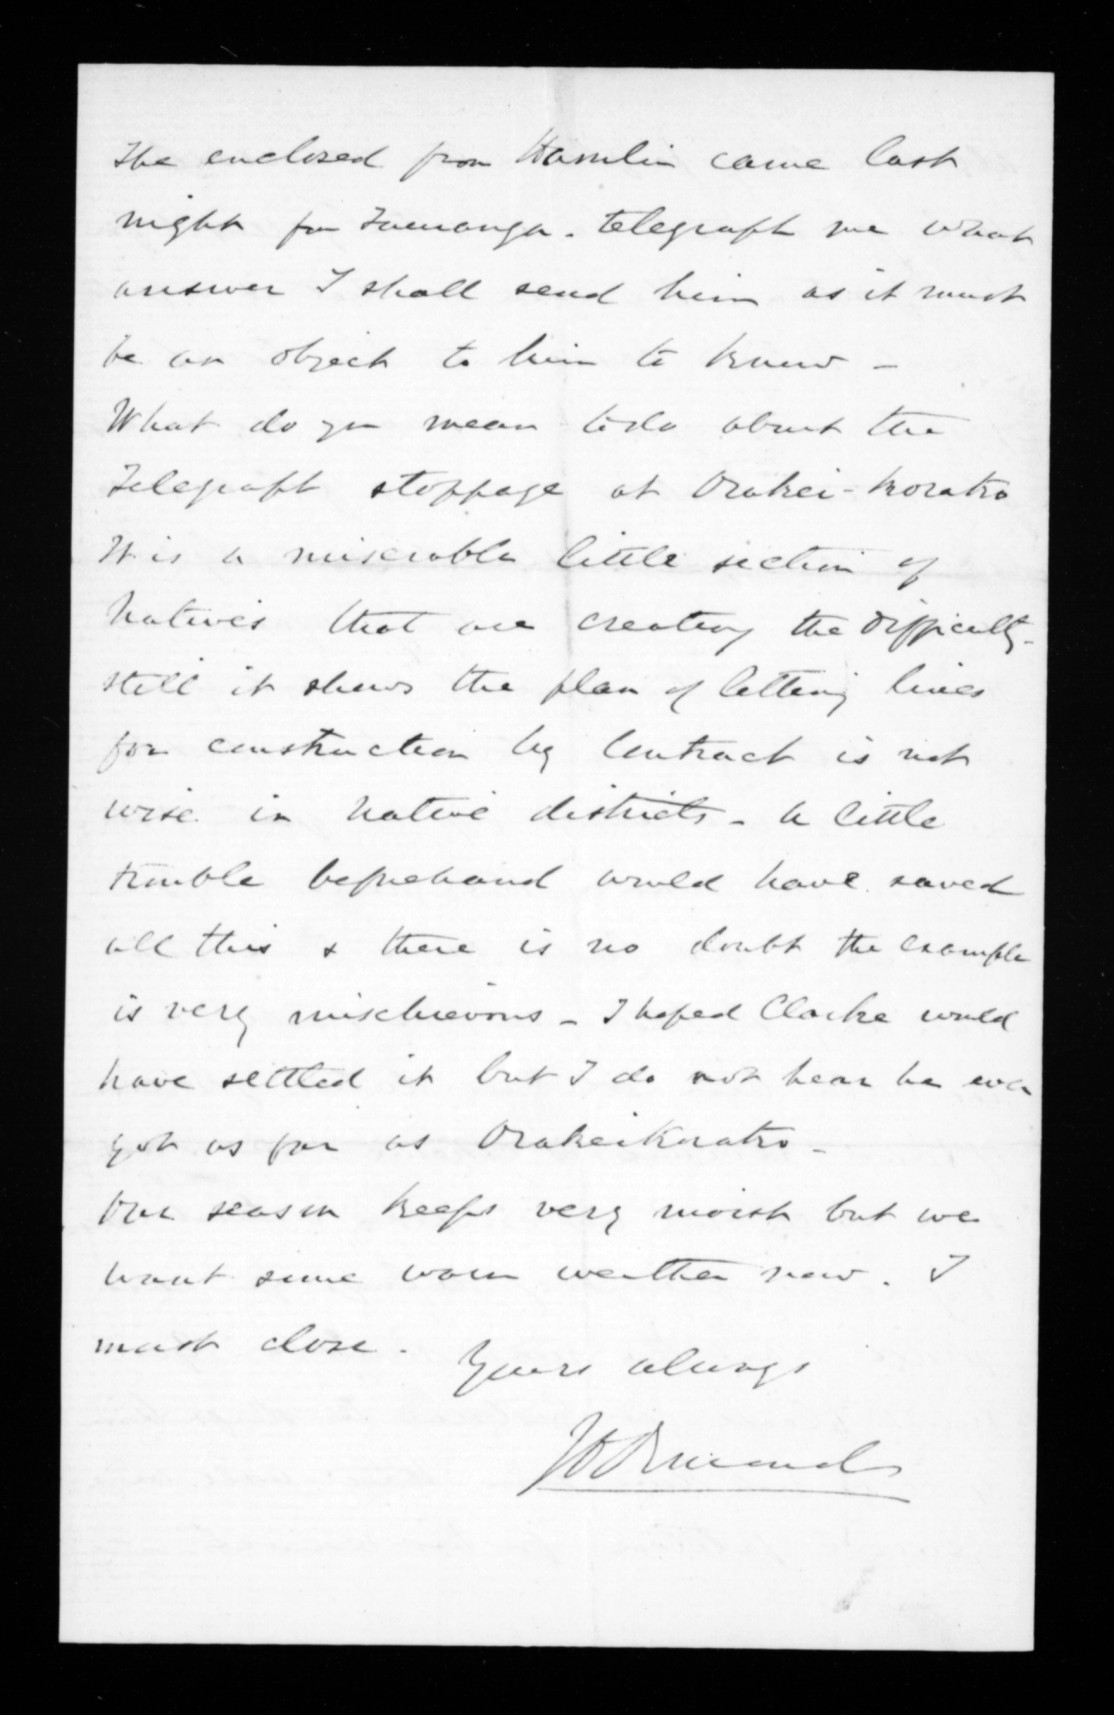 The enclosed from Hamlin came last
night from Tauranga. telegraph me what
answer I shall send him as it must
be an object to him to know -
What do you mean to do about the
Telegraph stoppage at Orakei-korako
It is a miserable little section of
Natives that are creating the difficulty -
still it shews the plan of letting lines
for construction by Contract is not
wise in Native districts - A little
trouble beforehand would have saved
all this & there is no doubt the example
is very mischievous - I hoped Clarke would
have settled it but I do not hear he ever
got as far as Orakeikorako -
Our season keeps very moist but we
want some warm weather now. I
must close.
Yours always
JD Ormond